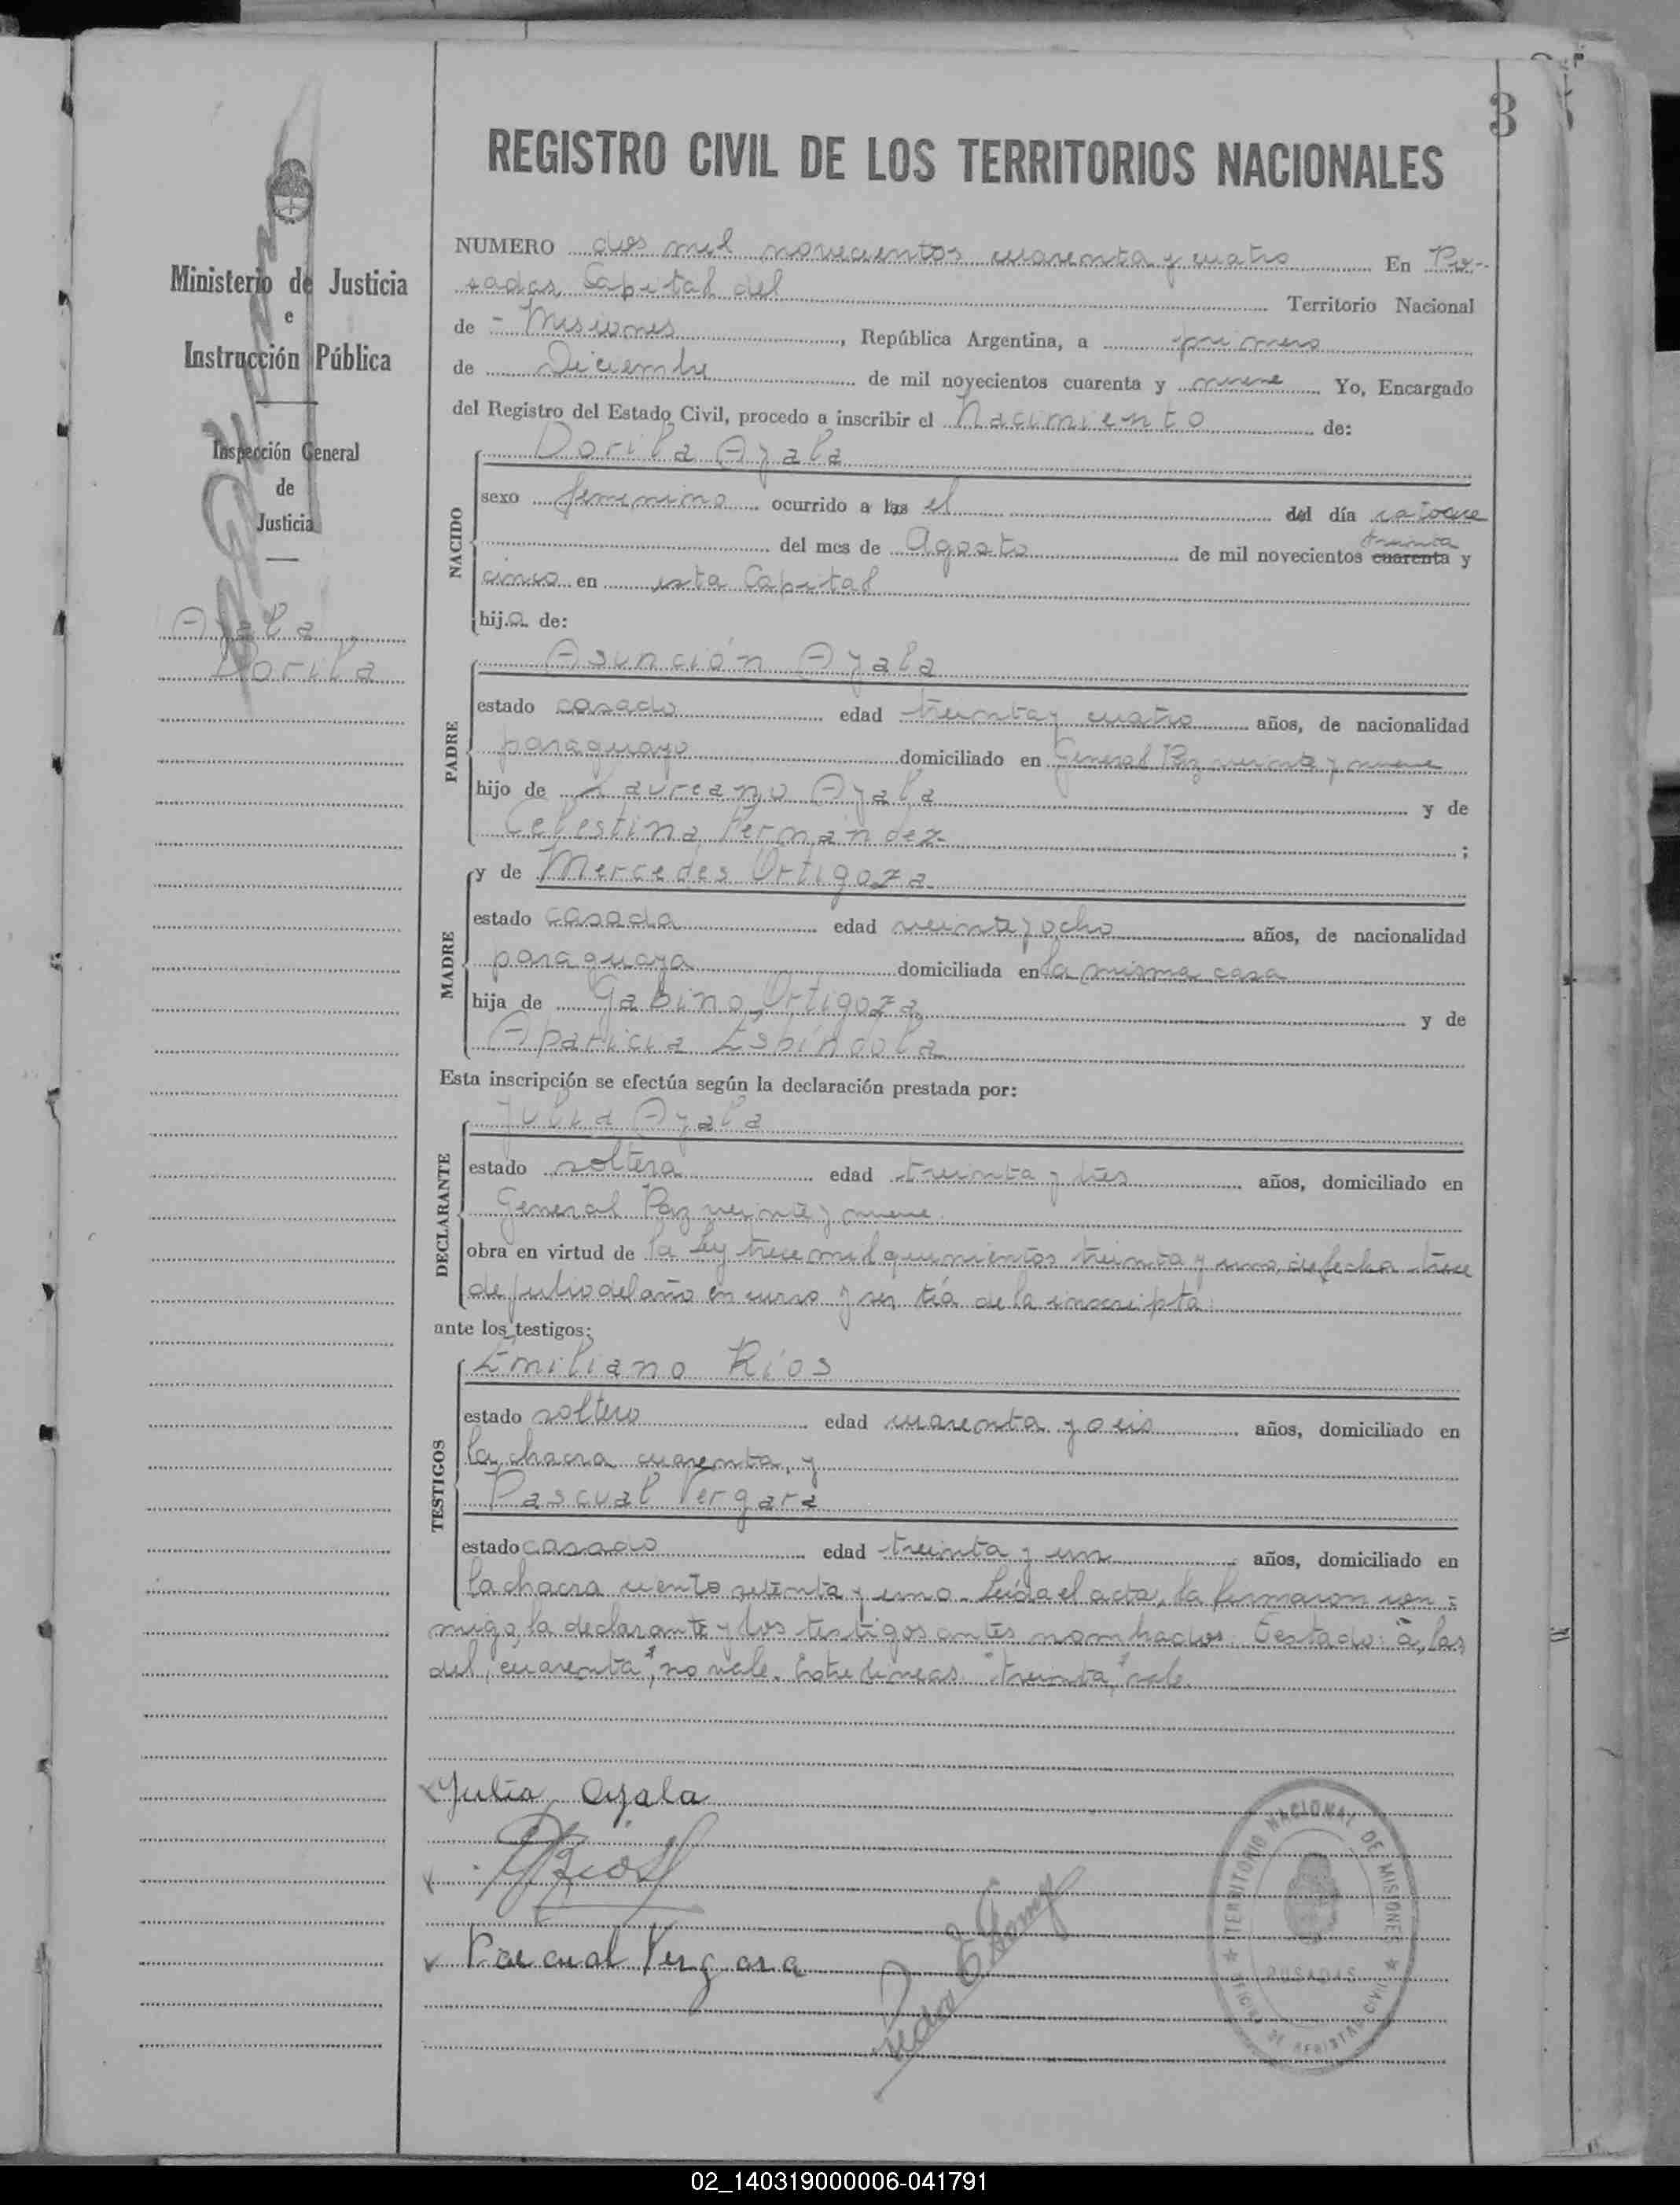 3
REGISTRO CIVIL DE LOS TERRITORIOS NACIONALES
Ministerio de Justicia
e
Instrucción Pública
Inspección General
de
Justicia
Ayala
Dorila
NUMERO dos mil novecientos cuarenta y cuatro En Po-
sadas, Capital del Territorio Nacional
de - Misiones, República Argentina, a primero
de Diciembre de mil novecientos cuarenta y nueve Yo, Encargado
del Registro del Estado Civil, procedo a inscribir el Nacimiento de:
Dorila Ayala
NACIDO
sexo femenino ocurrido a las el del día catorce
treinta
del mes de Agosto de mil novecientos cuarenta y
cinco en esta Capital
hija de:
Asunción Ayala
PADRE
estado casado edad treinta y cuatro años, de nacionalidad
paraguayo domiciliado en General Paz veinte y nueve
hijo de Laureano Ayala y de
Celestina Fernández;
MADRE
y de Mercedes Ortigoza
estado casada edad veinte y ocho años, de nacionalidad
paraguaya domiciliada en la misma casa
hija de Gabino Ortigoza y de
Aparicia Espíndola
Esta inscripción se efectúa según la declaración prestada por:
Julia Ayala
DECLARANTE
estado soltera edad treinta y tres años, domiciliado en
General Paz veinte y nueve
obra en virtud de la Ley trece mil quinientos treinta y uno, de fecha trece
de julio del año en curso y ser tía de la inscripta
ante los testigos:
Emiliano Ríos
TESTIGOS
estado soltero edad cuarenta y seis años, domiciliado en
la chacra cuarenta, y
Pascual Vergara
estado casado edad treinta y un años, domiciliado en
la chacra ciento setenta y uno. Leída el acta, la firmaron con-
migo, la declarante y los testigos antes nombrados. Testado: a, las
del, cuarenta", no vale. Entre líneas: "treinta", vale.
Julia Ayala
Ríos
Pascual Vergara
Pedro E. Gomez
TERRITORIO NACIONAL DE MISIONES
POSADAS
OFICINA DE REGISTRO CIVIL
02_140319000006-041791